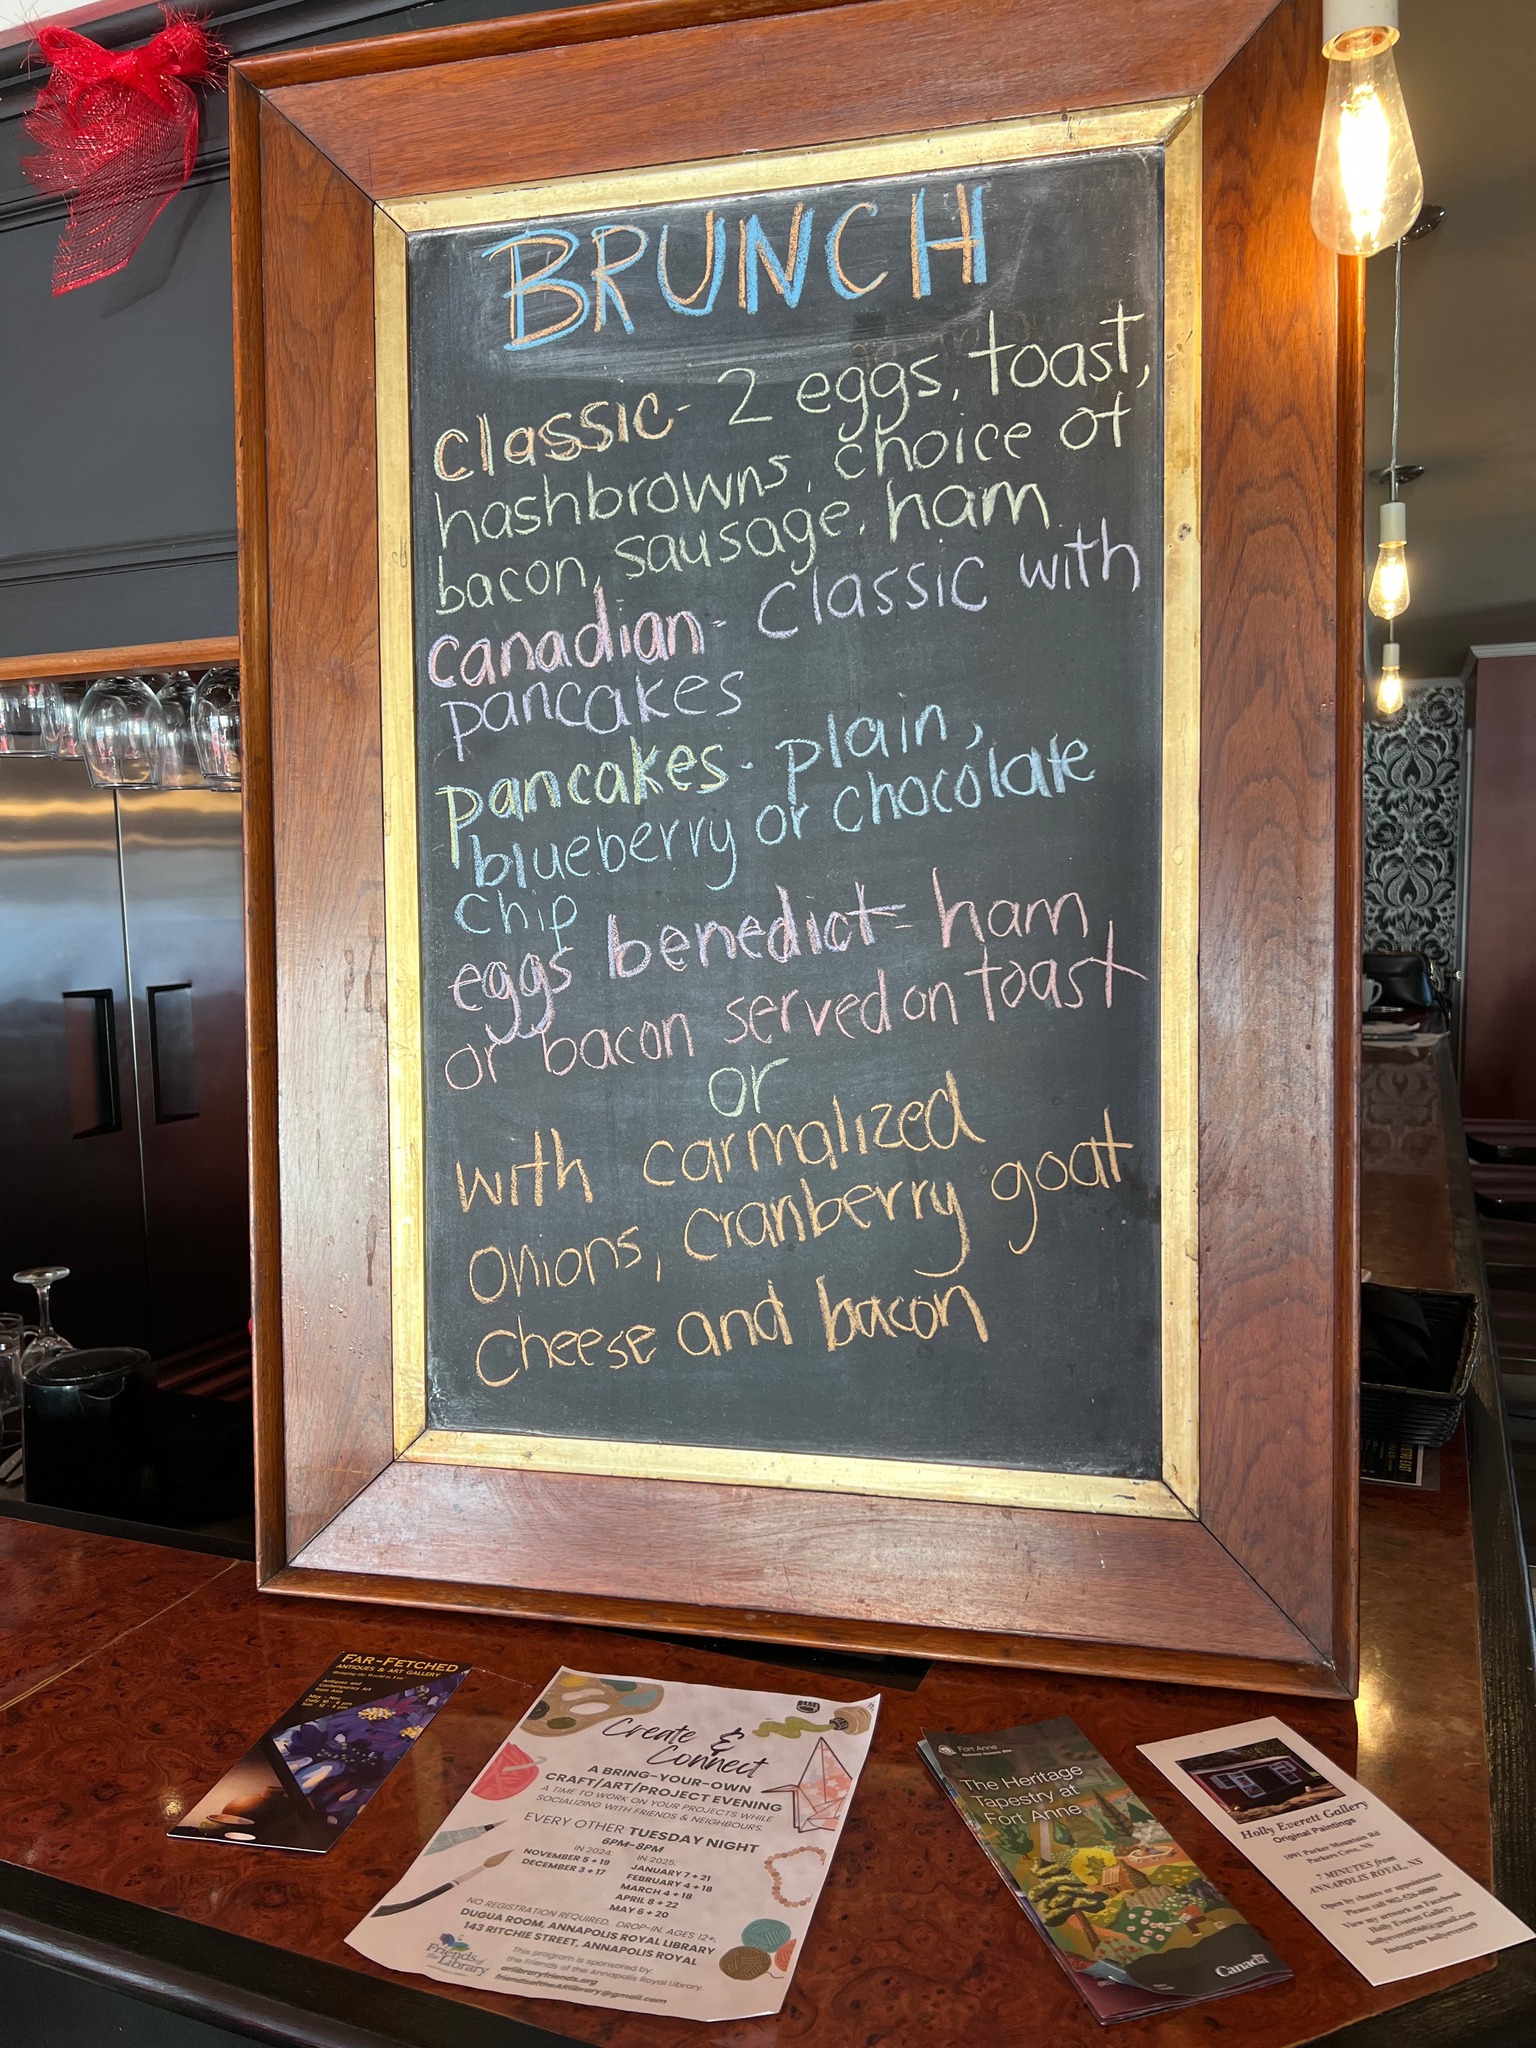 BRUNCH
classic - 2 eggs, toast,
hashbrowns, choice of
bacon, sausage, ham
canadian - classic with
pancakes
pancakes - plain,
blueberry or chocolate
chip
eggs benedict - ham
or bacon served on toast
or
with carmalized
onions, cranberry goat
cheese and bacon
FAR-FETCHED
ANTIQUES & ART GALLERY
Antiques and
Contemporary Art
from Asia
May - Nov
Create &
Connect
A BRING-YOUR-OWN
CRAFT/ART/PROJECT EVENING
A TIME TO WORK ON YOUR PROJECTS WHILE
SOCIALIZING WITH FRIENDS & NEIGHBOURS.
EVERY OTHER TUESDAY NIGHT
6PM-8PM
IN 2024:
NOVEMBER 5 + 19
DECEMBER 3 + 17
IN 2025:
JANUARY 7 + 21
FEBRUARY 4 + 18
MARCH 4 + 18
APRIL 8 + 22
MAY 6 + 20
NO REGISTRATION REQUIRED. DROP-IN. AGES 12+.
DUGUA ROOM, ANNAPOLIS ROYAL LIBRARY
143 RITCHIE STREET, ANNAPOLIS ROYAL
Friends of
the Library
This program is sponsored by
the Friends of the Annapolis Royal Library.
arlibraryfriends.org
friendsoftheARlibrary@gmail.com
Fort Anne
The Heritage
Tapestry at
Fort Anne
Canada
Holly Everett Gallery
Original Paintings
1091 Parker Mountain Rd
Parkers Cove, NS
7 MINUTES from
ANNAPOLIS ROYAL, NS
Open by chance or appointment
Please call
View my artwork on Facebook
Holly Everett Gallery